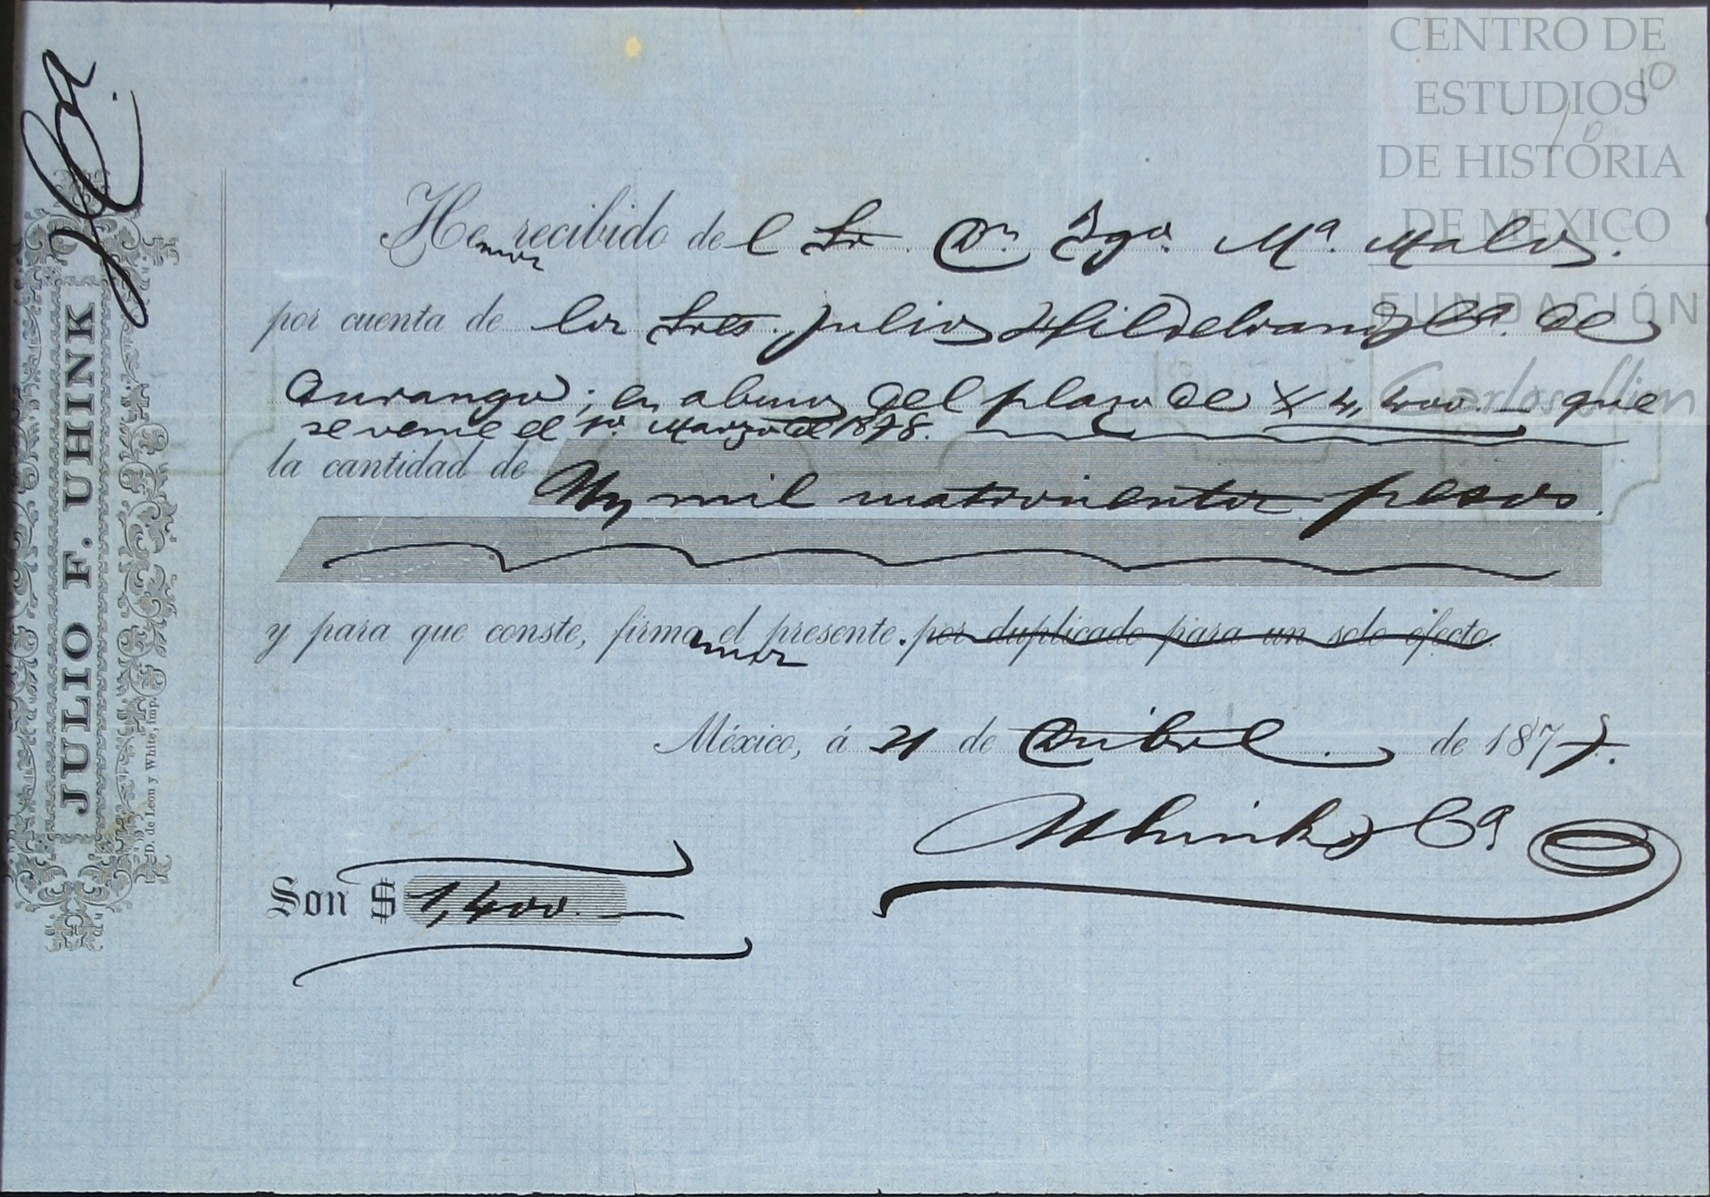 CENTRO DE
ESTUDIOS
DE HISTORIA
DE MÉXICO
FUNDACIÓN
Carlos Slim
10
JULIO F. UHINK
D. de Leon y White, imp.
y Ca.
Hemos recibido del Sr. Dn. Igo. Ma. Malo.
por cuenta de los Sres. Julio Hildebrand y Ca. de
Durango; en abono del plazo de $ 4,400.— que
se vence el 1o. Marzo de 1878.
la cantidad de Un mil cuatrocientos pesos.
y para que conste, firmamos el presente. por duplicado para un solo efecto.
México, á 21 de Abril. de 1877.
Uhink y Ca
Son $ 1,400.—